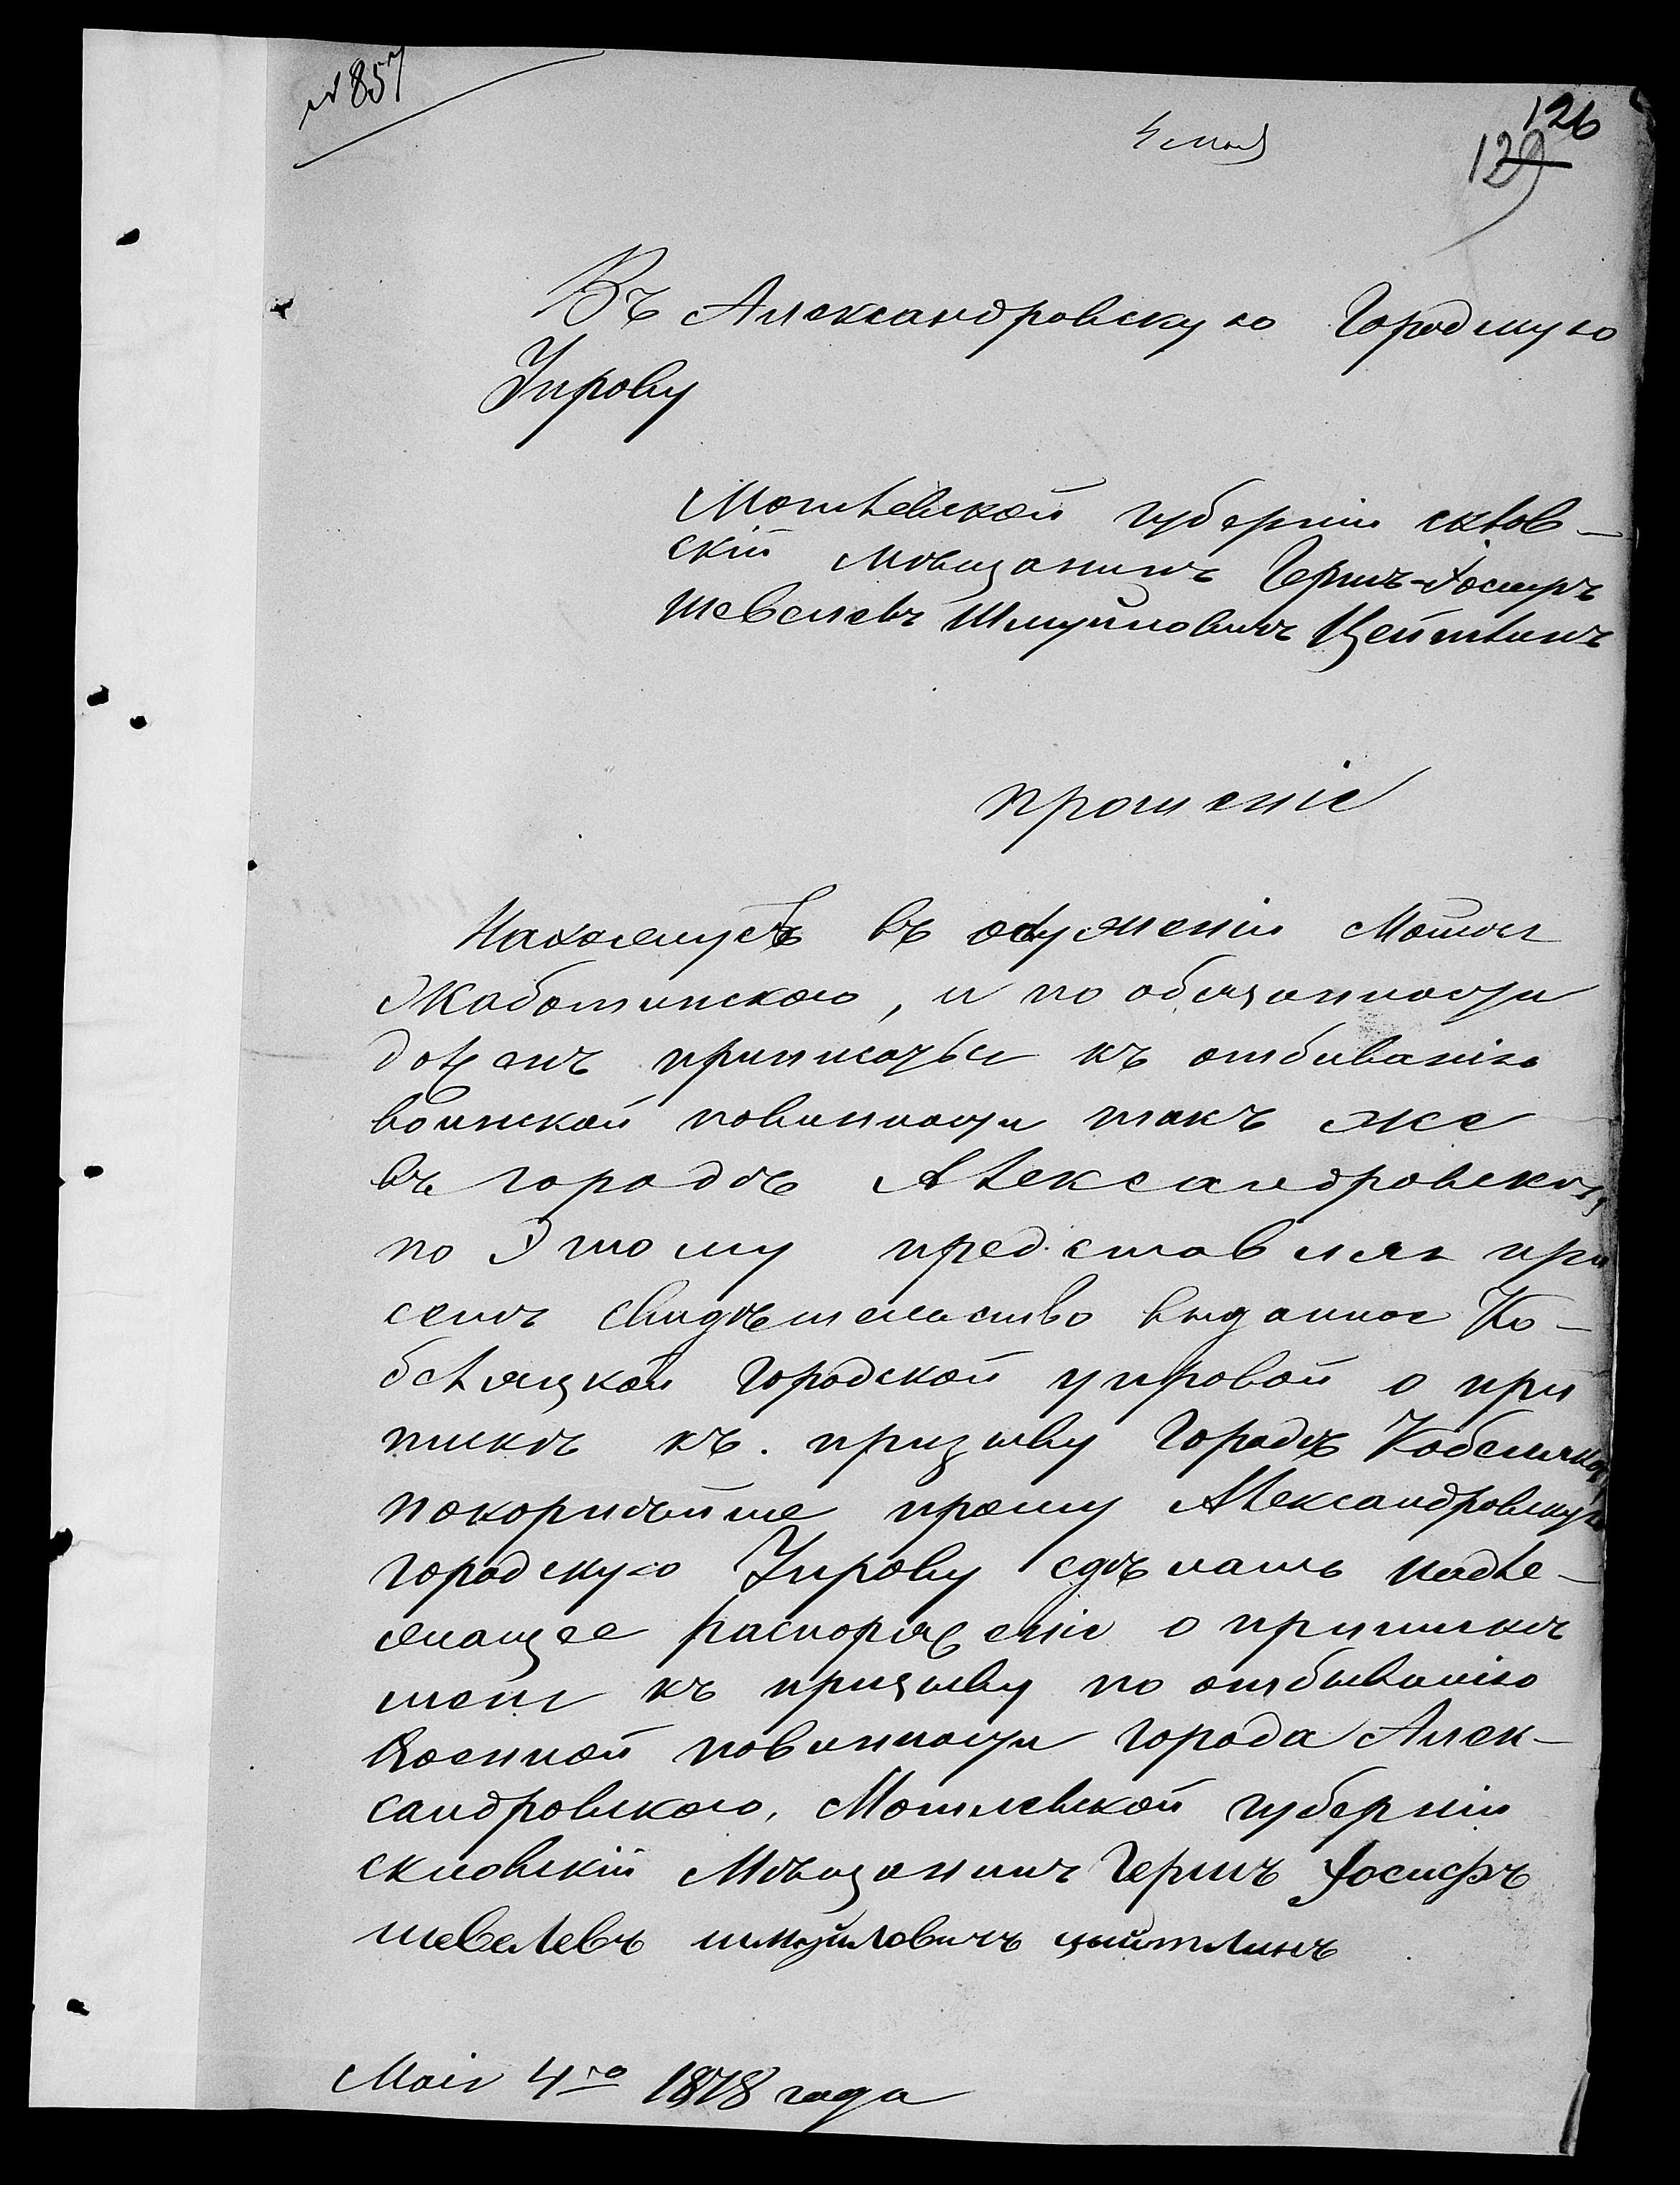 № 857
4 мая
126
129
Въ Александровскую Городскую
Управу
Могилевской губерніи склов-
скій мѣщанинъ Герцъ-Іосифъ
Шевелевъ Шмуйловичъ Цейтлинъ
прошеніе
Нахожусъ въ служеніи Мошки
Жаботинскаго, и по обязанности
должэнъ приписаться къ отбиванію
воинской повинности такъ же
въ городѣ Александровскѣ,
по Этому представляя при
семъ свидѣтельство выданное Ко-
беляцкой Городской управой о при
пискѣ къ призыву Городѣ Кобелякы,
покорнѣйше прошу Александровскую
городскую Управу сдѣлать надле-
жащее распоряженіе о припискѣ
меня къ призыву по отбыванію
Военной повинности города Алек-
сандровскаго, Могилевской губерніи
скловскій Мѣщанинъ Герцъ Іосифъ
шевелевъ шмуйловичъ цыйтлинъ
Маія 4го 1878 года